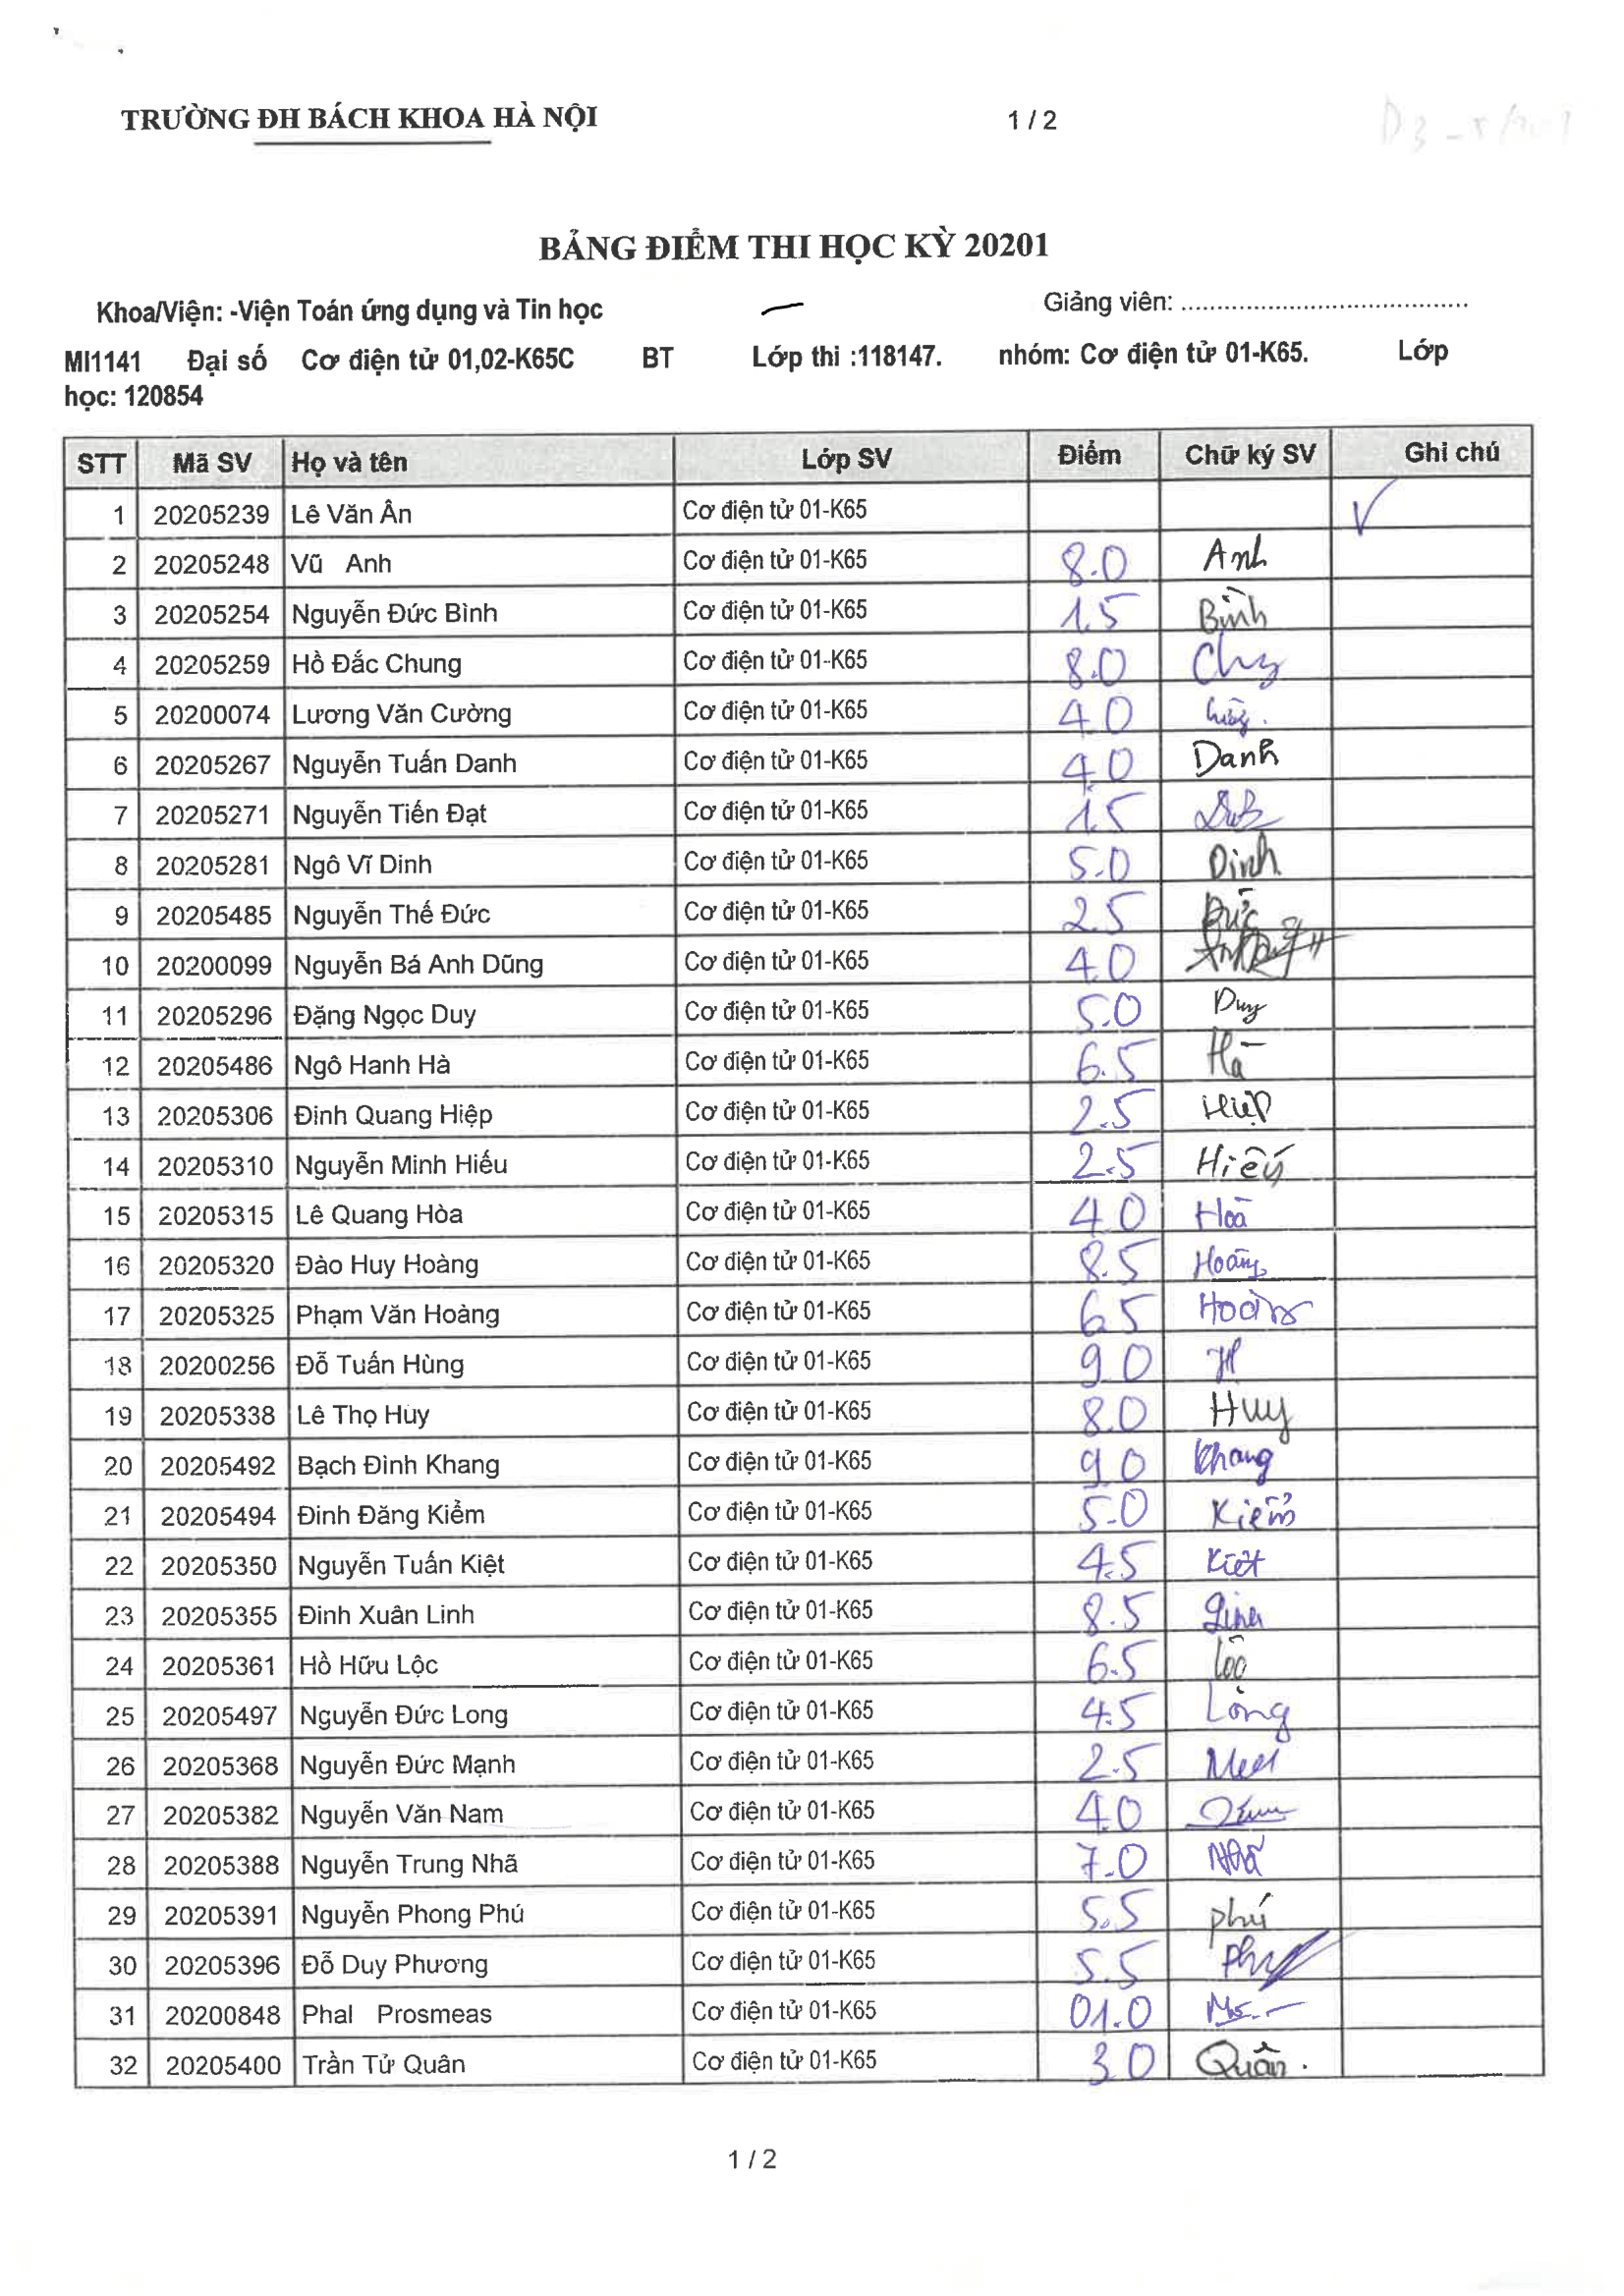 TRƯỜNG ĐH BÁCH KHOA HÀ NỘI 1 / 2
BẢNG ĐIỂM THI HỌC KỲ 20201
Khoa/Viện: -Viện Toán ứng dụng và Tin học Giảng viên: ......................................
MI1141 Đại số Cơ điện tử 01,02-K65C BT Lớp thi :118147. nhóm: Cơ điện tử 01-K65. Lớp
học: 120854
STT Mã SV Họ và tên Lớp SV Điểm Chữ ký SV Ghi chú
1 20205239 Lê Văn Ân Cơ điện tử 01-K65 ✓
2 20205248 Vũ Anh Cơ điện tử 01-K65 8.0 Anh
3 20205254 Nguyễn Đức Bình Cơ điện tử 01-K65 1.5 Bình
4 20205259 Hồ Đắc Chung Cơ điện tử 01-K65 8.0
5 20200074 Lương Văn Cường Cơ điện tử 01-K65 4.0
6 20205267 Nguyễn Tuấn Danh Cơ điện tử 01-K65 4.0 Danh
7 20205271 Nguyễn Tiến Đạt Cơ điện tử 01-K65 1.5
8 20205281 Ngô Vĩ Dinh Cơ điện tử 01-K65 5.0 Dinh
9 20205485 Nguyễn Thế Đức Cơ điện tử 01-K65 2.5 Đức
10 20200099 Nguyễn Bá Anh Dũng Cơ điện tử 01-K65 4.0
11 20205296 Đặng Ngọc Duy Cơ điện tử 01-K65 5.0 Duy
12 20205486 Ngô Hanh Hà Cơ điện tử 01-K65 6.5 Hà
13 20205306 Đinh Quang Hiệp Cơ điện tử 01-K65 2.5 Hiệp
14 20205310 Nguyễn Minh Hiếu Cơ điện tử 01-K65 2.5 Hiếu
15 20205315 Lê Quang Hòa Cơ điện tử 01-K65 4.0 Hoà
16 20205320 Đào Huy Hoàng Cơ điện tử 01-K65 8.5 Hoàng
17 20205325 Phạm Văn Hoàng Cơ điện tử 01-K65 6.5 Hoàng
18 20200256 Đỗ Tuấn Hùng Cơ điện tử 01-K65 9.0
19 20205338 Lê Thọ Huy Cơ điện tử 01-K65 8.0 Huy
20 20205492 Bạch Đình Khang Cơ điện tử 01-K65 9.0 Khang
21 20205494 Đinh Đăng Kiểm Cơ điện tử 01-K65 5.0 Kiểm
22 20205350 Nguyễn Tuấn Kiệt Cơ điện tử 01-K65 4.5 Kiệt
23 20205355 Đinh Xuân Linh Cơ điện tử 01-K65 8.5 Linh
24 20205361 Hồ Hữu Lộc Cơ điện tử 01-K65 6.5 Lộc
25 20205497 Nguyễn Đức Long Cơ điện tử 01-K65 4.5 Long
26 20205368 Nguyễn Đức Mạnh Cơ điện tử 01-K65 2.5
27 20205382 Nguyễn Văn Nam Cơ điện tử 01-K65 4.0
28 20205388 Nguyễn Trung Nhã Cơ điện tử 01-K65 7.0 Nhã
29 20205391 Nguyễn Phong Phú Cơ điện tử 01-K65 5.5 Phú
30 20205396 Đỗ Duy Phương Cơ điện tử 01-K65 5.5
31 20200848 Phal Prosmeas Cơ điện tử 01-K65 01.0
32 20205400 Trần Tử Quân Cơ điện tử 01-K65 3.0 Quân.
1 / 2